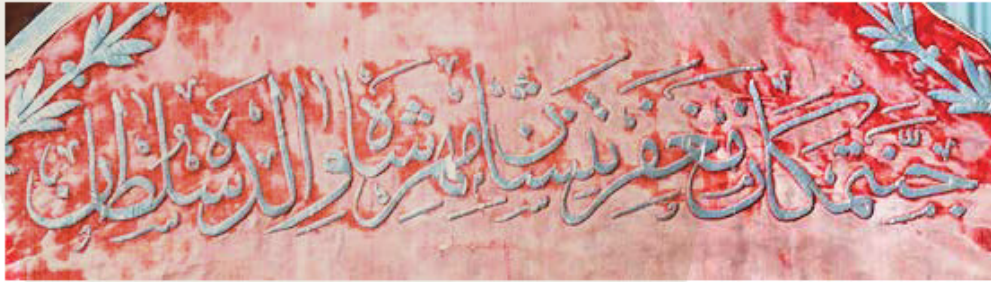 جنّتمكان مغفرتنشان مهرشاه والده سلطان